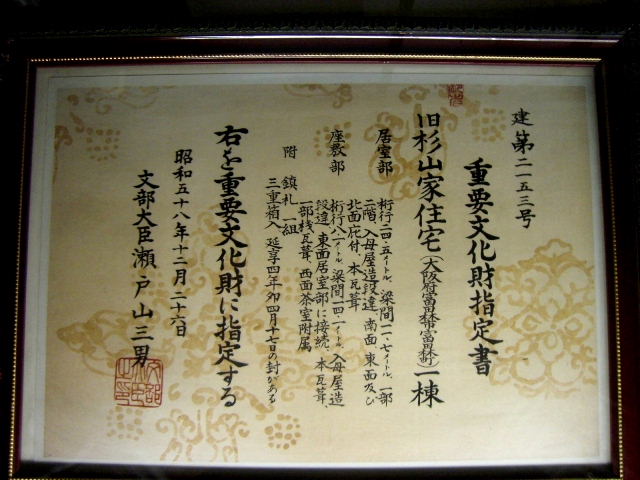 建第二一五三号
重要文化財指定書
旧杉山家住宅(大阪府富田林市富田林町)一棟
居室部
桁行二四・五メートル、梁間一一・七メートル、一部
二階、入母屋造段違、南面、東面及び
北面庇付、本瓦葺
座敷部
桁行八・一メートル、梁間一四・一メートル、入母屋造
段違、東面居室部に接続、本瓦葺、
一部桟瓦葺、西面茶室附属
附 鎮札 一組
三重箱入 延享四年卯四月十七日の封がある
右を重要文化財に指定する
昭和五十八年十二月二十六日
文部大臣瀬戸山三男